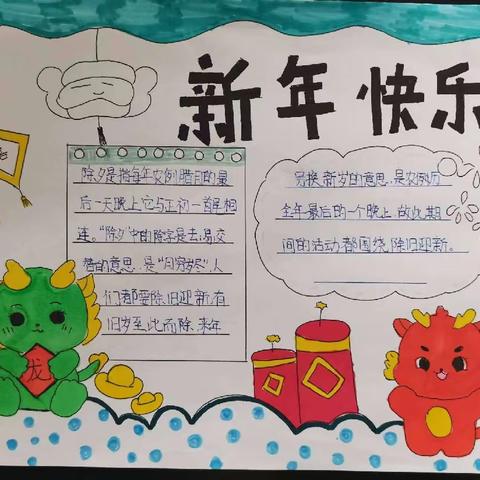 新年快乐
除夕是指每年农例腊月的最
后一天晚上它与正初一首尾相
连。“除夕”中的除字是去，易交
替的意思．是“月穷岁尽”人
们都要除旧迎新，有
旧岁至此而除．来年
另换新岁的意思．是农例历
全年最后的一个晚上．故此期
间的活动都围绕．除旧迎新。
龙